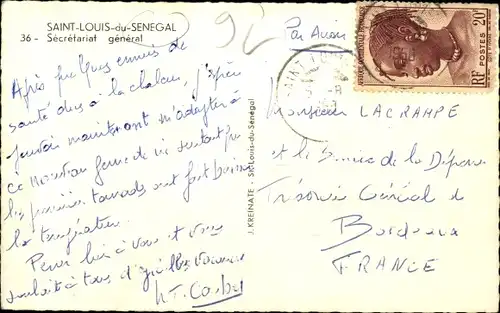 SAINT-LOUIS-du-SENEGAL
36 - Secrétariat général
Après quelques ennuis de
santé dus à la chaleur, j'espère
pouvoir maintenant m'adapter à
ce nouveau genre de vie surtout que
les premières tornades ont fort baissé
la température.
Pense bien à vous et vous
souhaite à tous d'
J. KREINATE - St-Louis-du-Sénégal
92
Par Avion
SAINT LOUIS
RF POSTES 20F
Monsieur LACRAMPE
et le Service de la Dépense
Trésorerie Générale de
Bordeaux
FRANCE